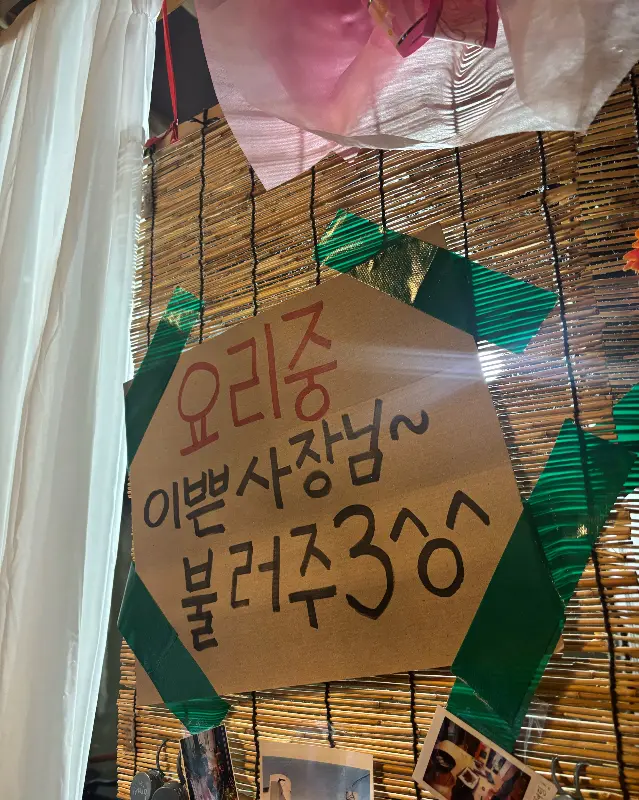 요리중
이쁜사장님~
불러주3^o^